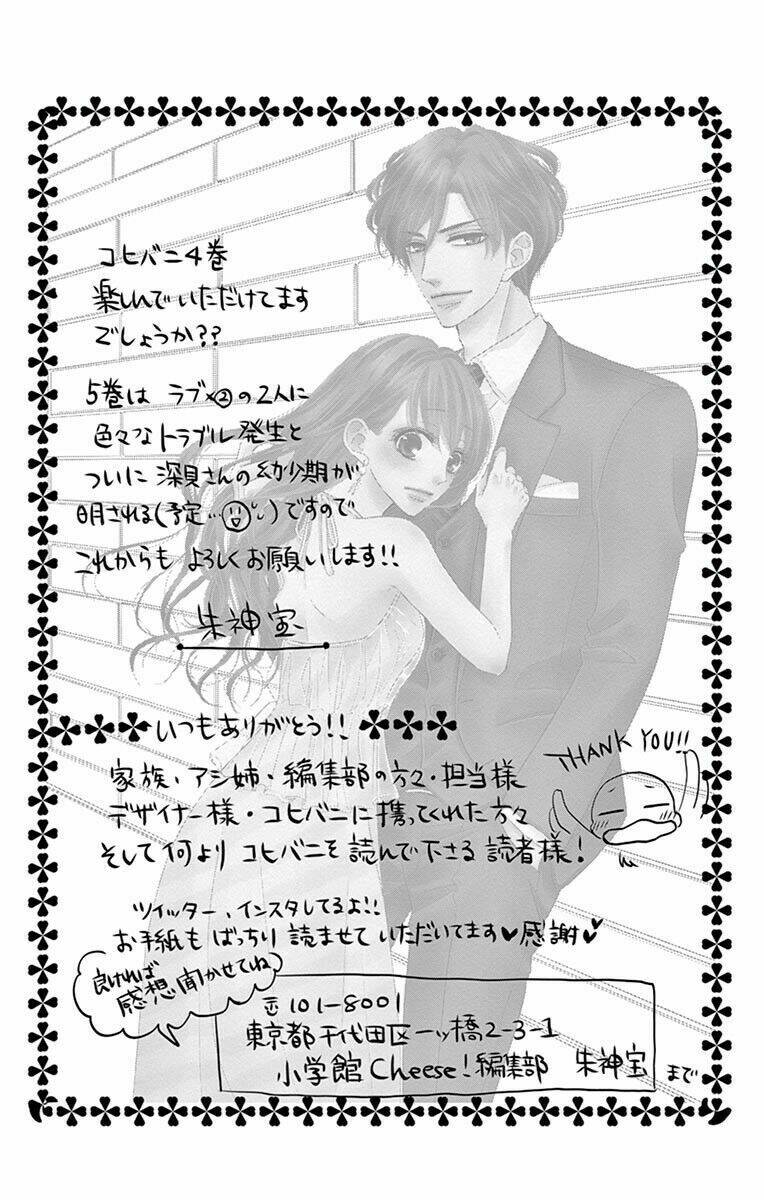 コヒバニ4巻
楽しんでいただけてます
でしょうか??
5巻は ラブ×②の2人に
色々なトラブル発生と
ついに 深見さんの幼少期が
明される(予定…)ですので
これからも よろしくお願いします!!
朱神宝
いつもありがとう!!
THANK YOU!!
家族、アシ姉・編集部の方々・担当様
デザイナー様・コヒバニに携ってくれた方々
そして何より コヒバニを読んで下さる読者様!
ツイッター、インスタしてるよ!!
お手紙も ばっちり 読ませていただいてます♥感謝♥
良ければ
感想聞かせてね
〒101-8001
東京都千代田区一ッ橋2-3-1
小学館Cheese!編集部 朱神宝 まで